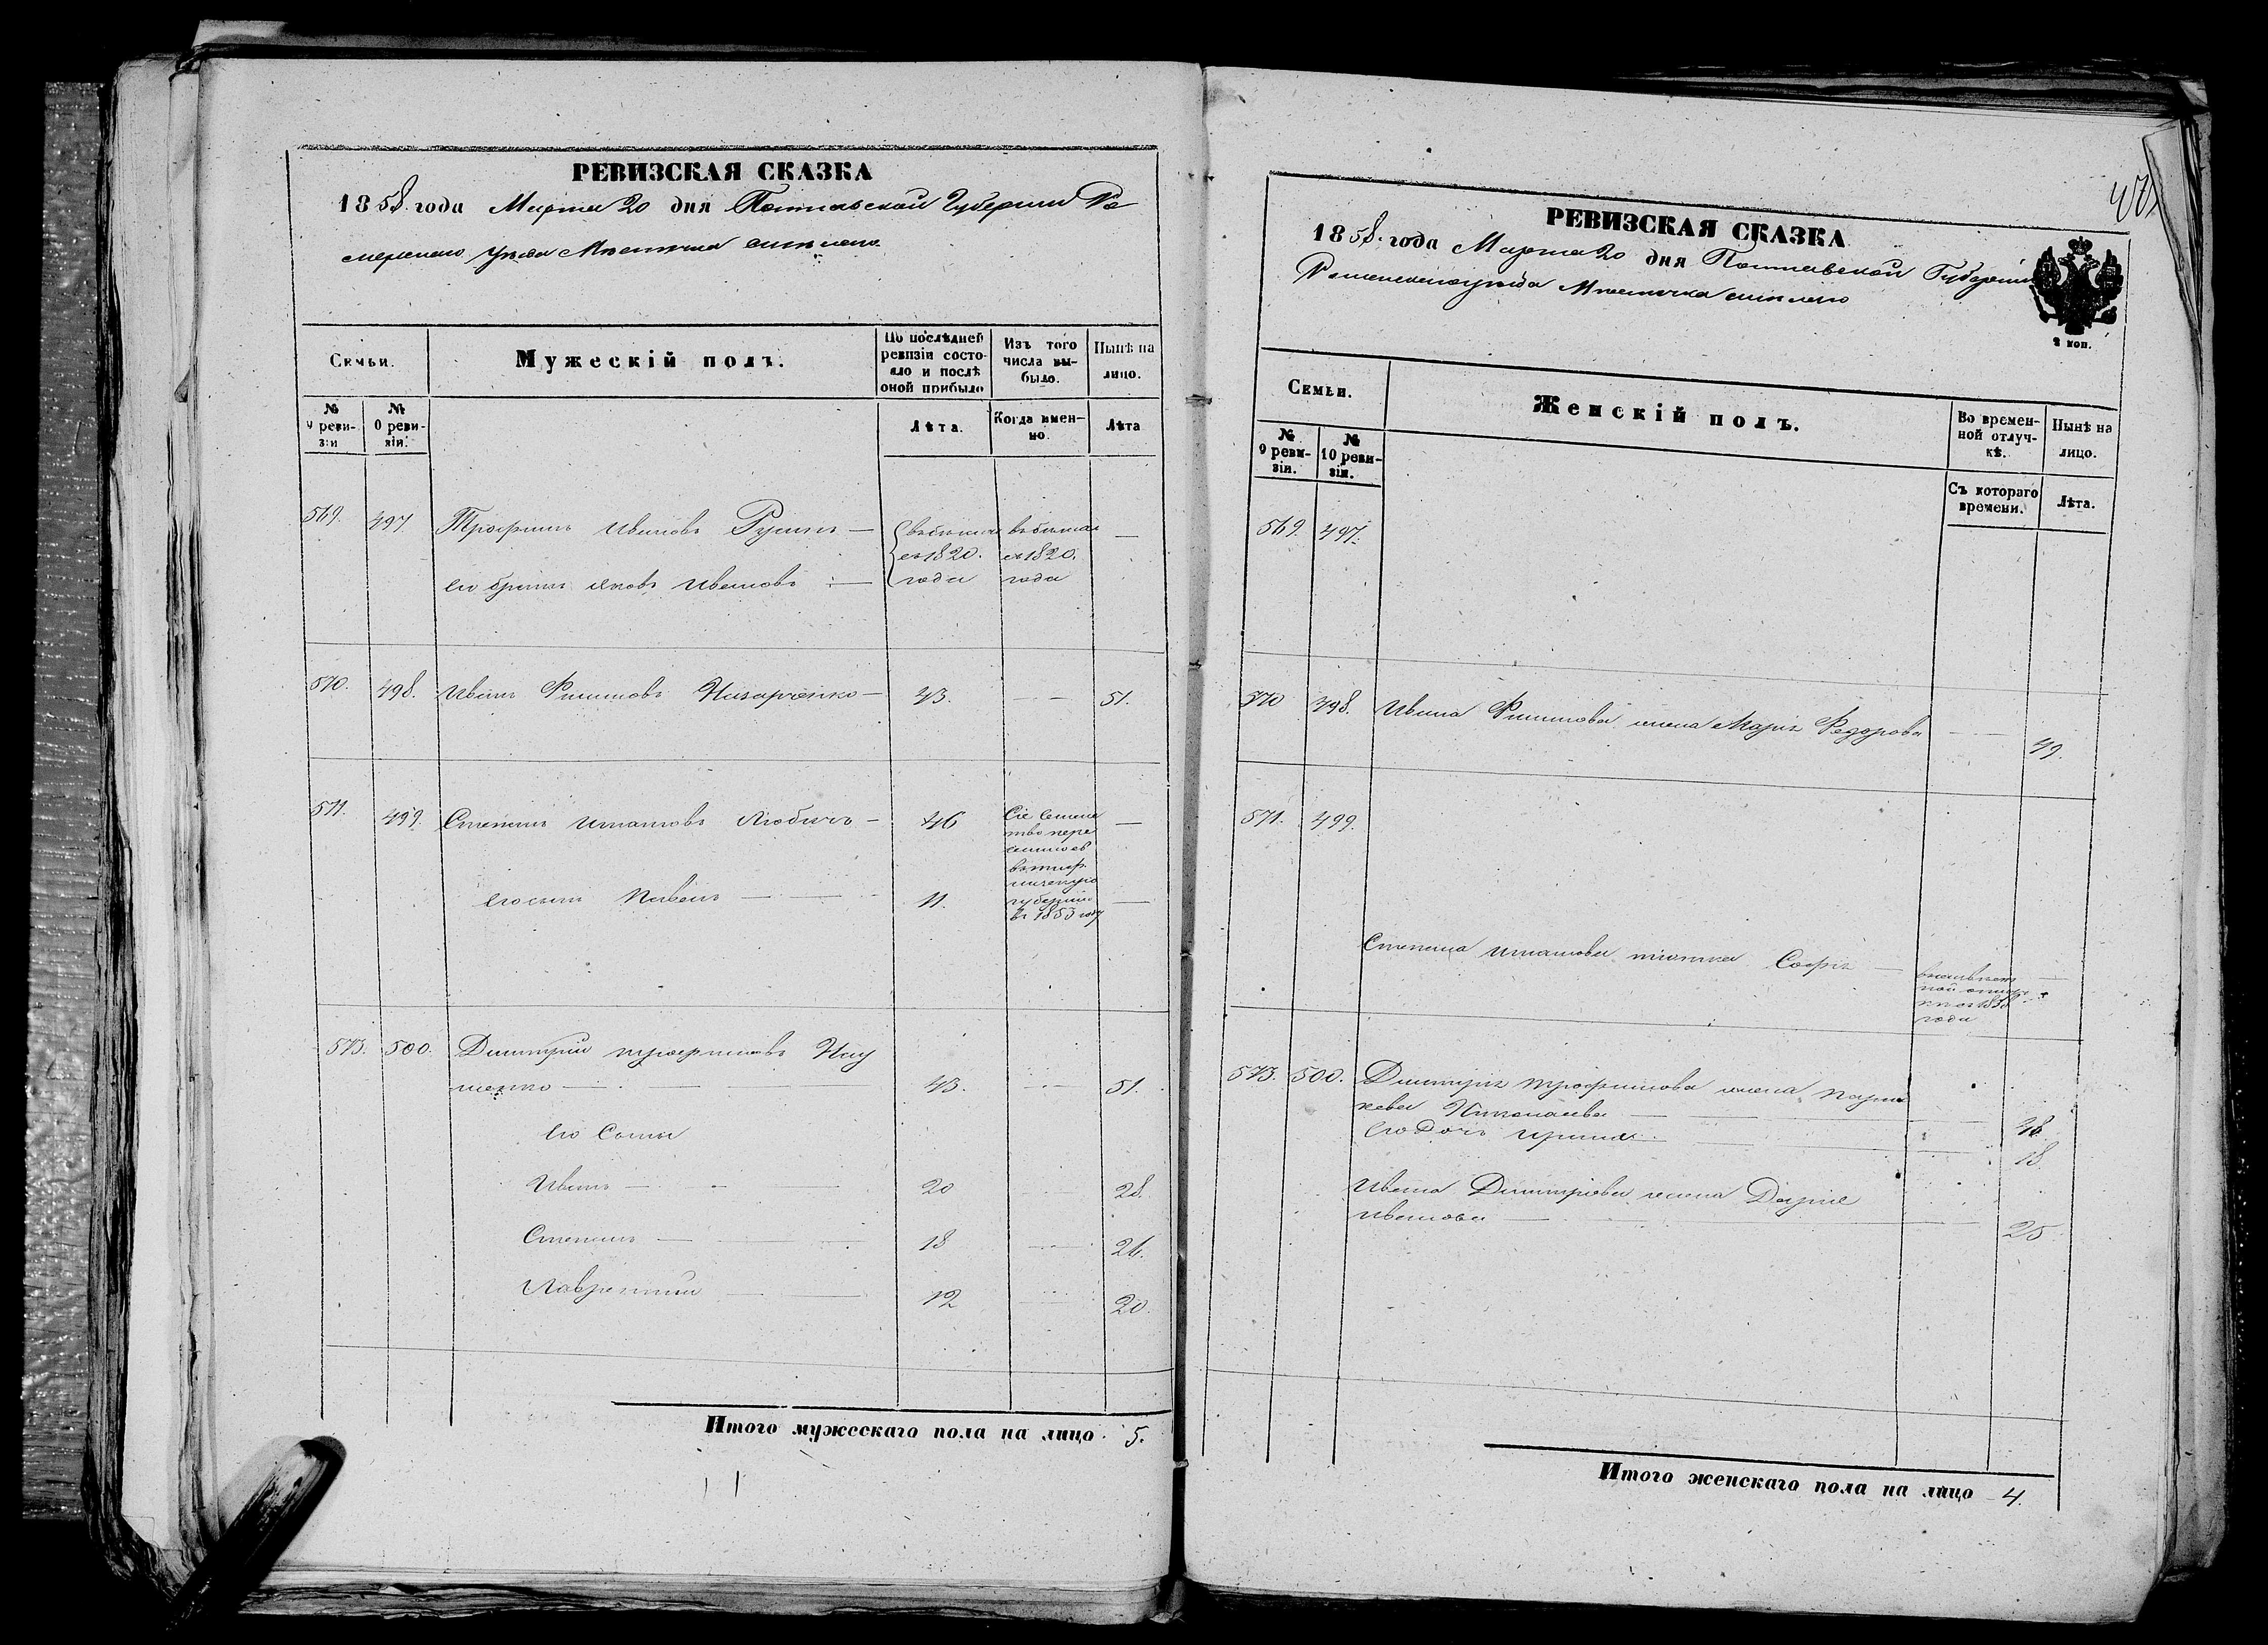 РЕВИЗСКАЯ СКАЗКА
1858 года Марта 20 дня Полтавской Губернии Ро
менскаго уѣзда Мѣстечка
Семьи.
Мужескій полъ.
По послѣдней ревизіи состояло и послѣ оной прибыло
Изъ того числа выбыло.
Нынѣ на лицо.
№ 9 ревизіи
№ 10 ревизіи.
Лѣта.
Когда именно.
Лѣта
569. 497. Трофимъ Ивановъ Русинъ — въ бѣгахъ въ бѣгахъ —
съ 1820. съ 1820.
его братъ Яковъ Ивановъ — года года
570. 498. Иванъ Филиповъ Назаренко — 43. — 51.
571. 499. Степанъ Игнатовъ Любичъ — 46 Сіе семей —
ство пере
въ
его сынъ Павелъ — 11. губернію —
въ 1853 году
573. 500. Димитрій Трофимовъ
— 43. — 51.
его Сыны
Иванъ — 20 — 28.
Степанъ — 18 — 26.
Лаврентій — 12 — 20.
Итого мужескаго пола на лицо. 5.
РЕВИЗСКАЯ СКАЗКА
1858. года Марта 20 дня Полтавской Губерніи
Роменскаго уѣзда Мѣстечка
2 коп.
Семьи.
Женскій полъ.
Во временной отлучкѣ.
Нынѣ на лицо.
№ 9 ревизіи.
№ 10 ревизіи.
Съ котораго времени.
Лѣта.
569. 497.
570 498. Ивана Филипова жена Марія Федорова — 49.
571. 499.
Степана Игнатова тіотка Софія —
1850
года
573. 500. Димитрія Трофимова жена Парас
кева Николаева — 48.
его дочь Ирина — 18.
Ивана Димитріева жена Дарія
Иванова — 25
Итого женскаго пола на лицо 4.